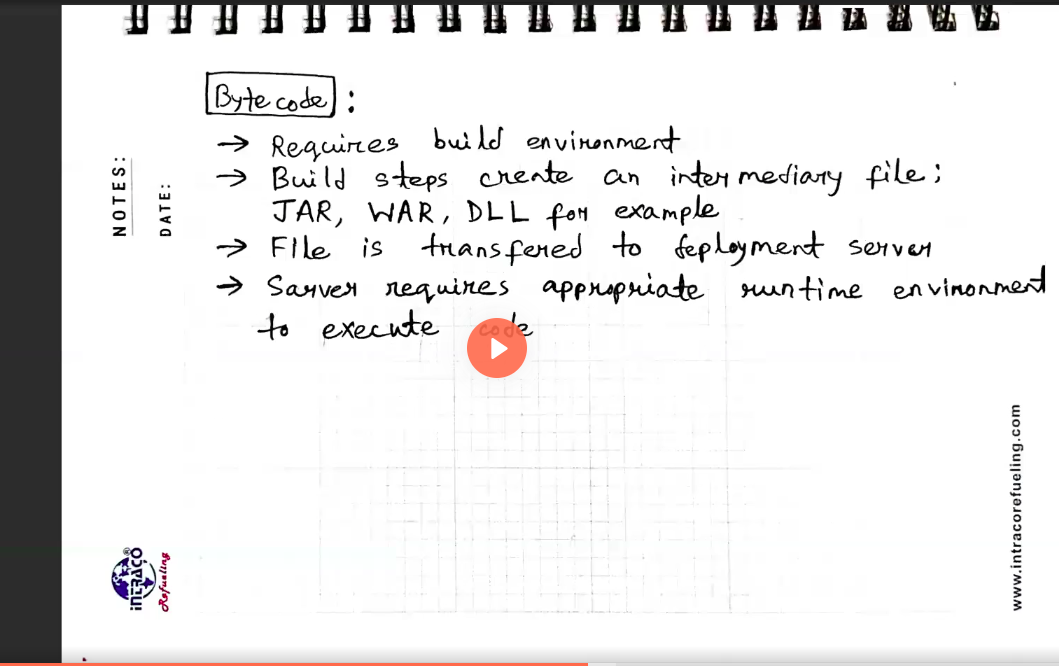 Bytecode :
→ Requires build environment
→ Build steps create an intermediary file;
JAR, WAR, DLL for example
→ File is transfered to deployment server
→ Server requires appropriate runtime environment
to execute code
NOTES:
DATE:
INTRACO®
Refueling
www.intracorefueling.com